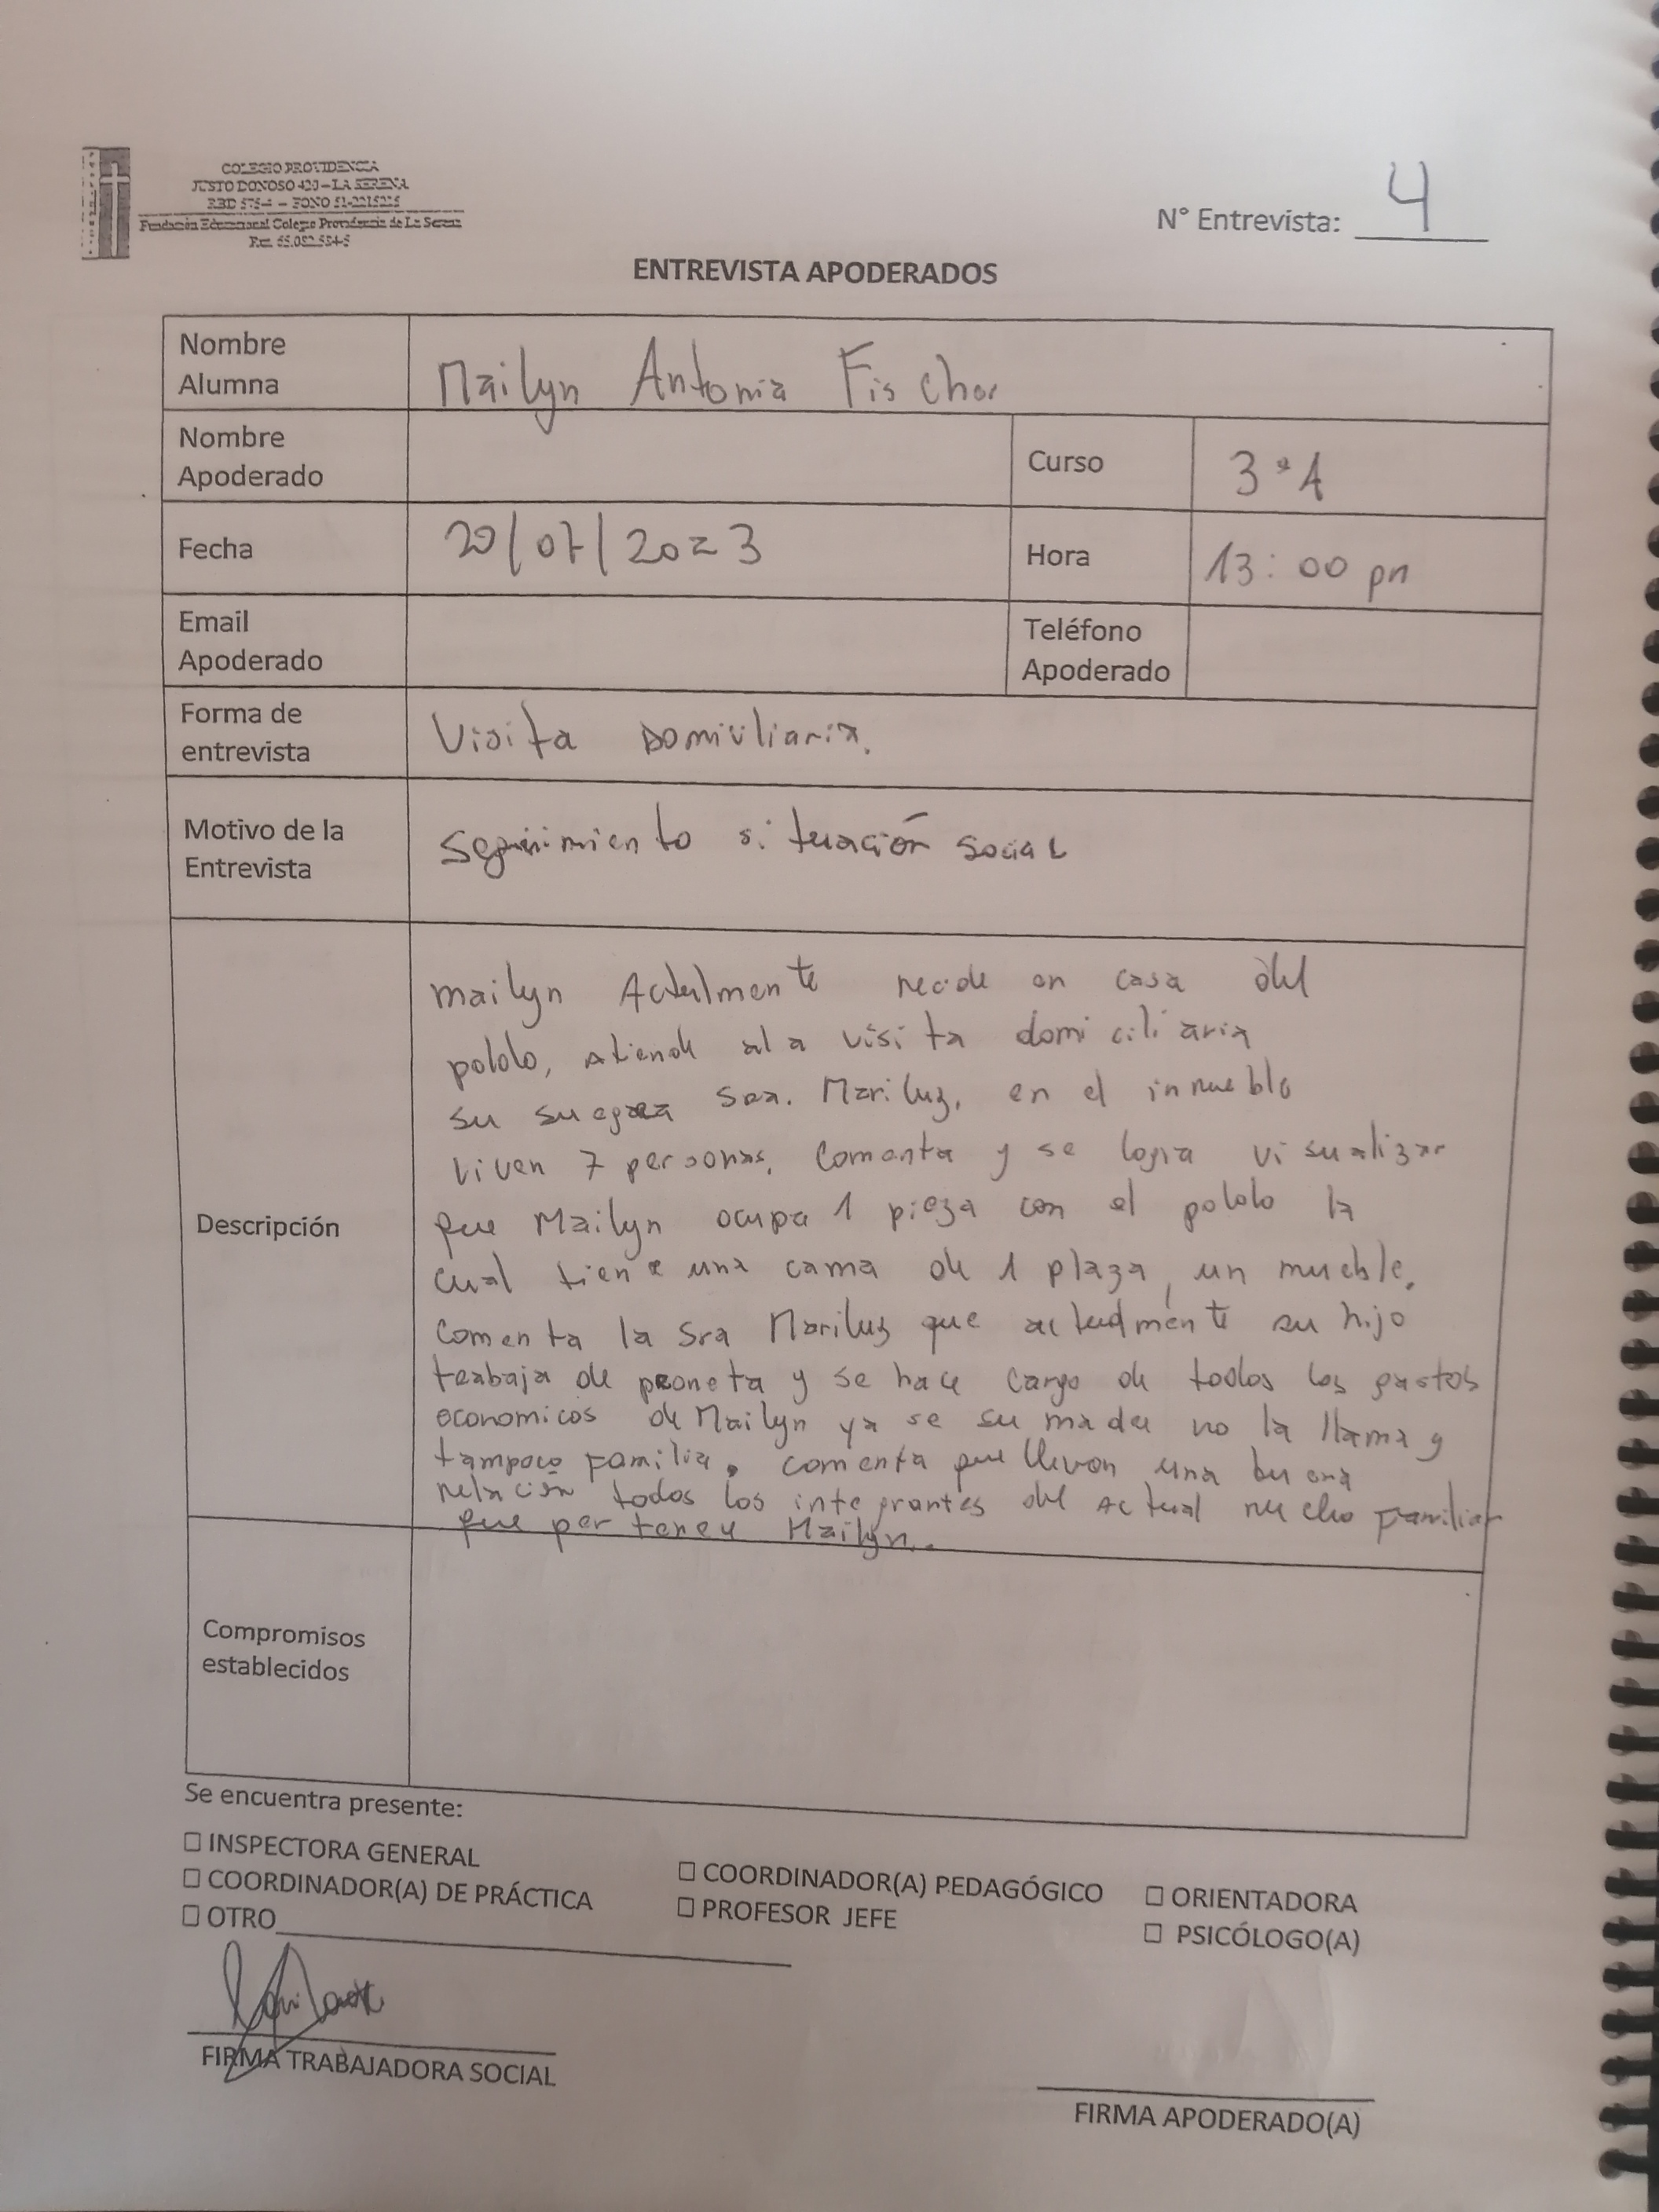 COLEGIO PROVIDENCIA
JUSTO DONOSO 420 – LA SERENA
RBD 575-4 – FONO 51-2215225
Fundación Educacional Colegio Providencia de La Serena
N° Entrevista: 4
ENTREVISTA APODERADOS
Nombre Alumna Mailyn Antonia Fischer
Nombre Apoderado
Curso 3°A
Fecha 20/07/2023
Hora 13:00 pm
Email Apoderado
Teléfono Apoderado
Forma de entrevista Visita Domiciliaria.
Motivo de la Entrevista Seguimiento situación social
Descripción
Mailyn Actualmente reside en casa del
pololo, atiende al a visita domiciliaria
su suegra Sra. Mariluz, en el inmueble
viven 7 personas, comenta y se logra visualizar
que Mailyn ocupa 1 pieza con el pololo la
cual tiene una cama de 1 plaza, un mueble.
Comenta la Sra Mariluz que actualmente su hijo
trabaja de peoneta y se hace cargo de todos los gastos
economicos de Mailyn ya se su madre no la llama y
tampoco familia. comenta que llevan una buena
relación todos los integrantes del actual nucleo familiar
que pertenece Mailyn.
Compromisos establecidos
Se encuentra presente:
☐ INSPECTORA GENERAL
☐ COORDINADOR(A) PEDAGÓGICO
☐ ORIENTADORA
☐ COORDINADOR(A) DE PRÁCTICA
☐ PROFESOR JEFE
☐ PSICÓLOGO(A)
☐ OTRO
FIRMA TRABAJADORA SOCIAL
FIRMA APODERADO(A)